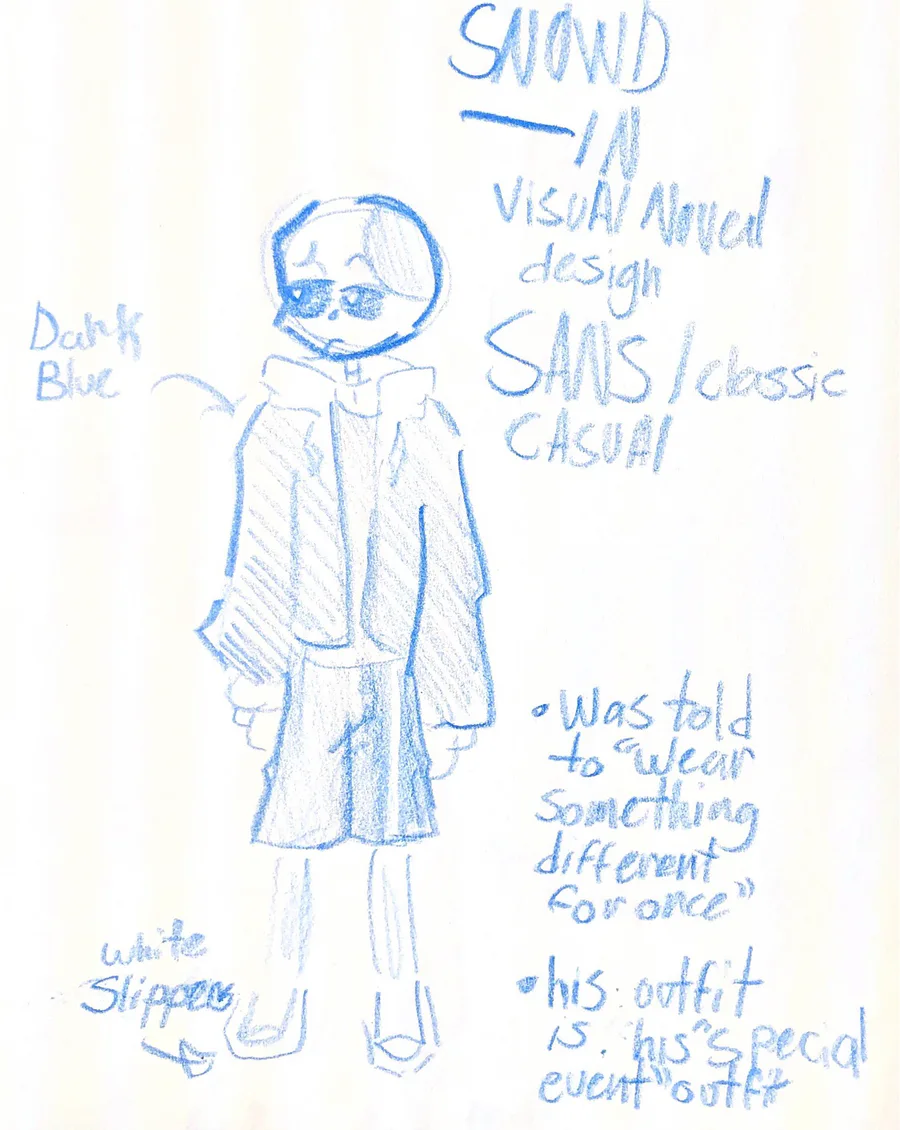 SNOWD
—IN
VisuAl Novel
design
SANS / classic
CASUAl
Dark
Blue
• Was told
to "wear
something
different
for once"
• his outfit
is his "special
event" outfit
white
Slippers